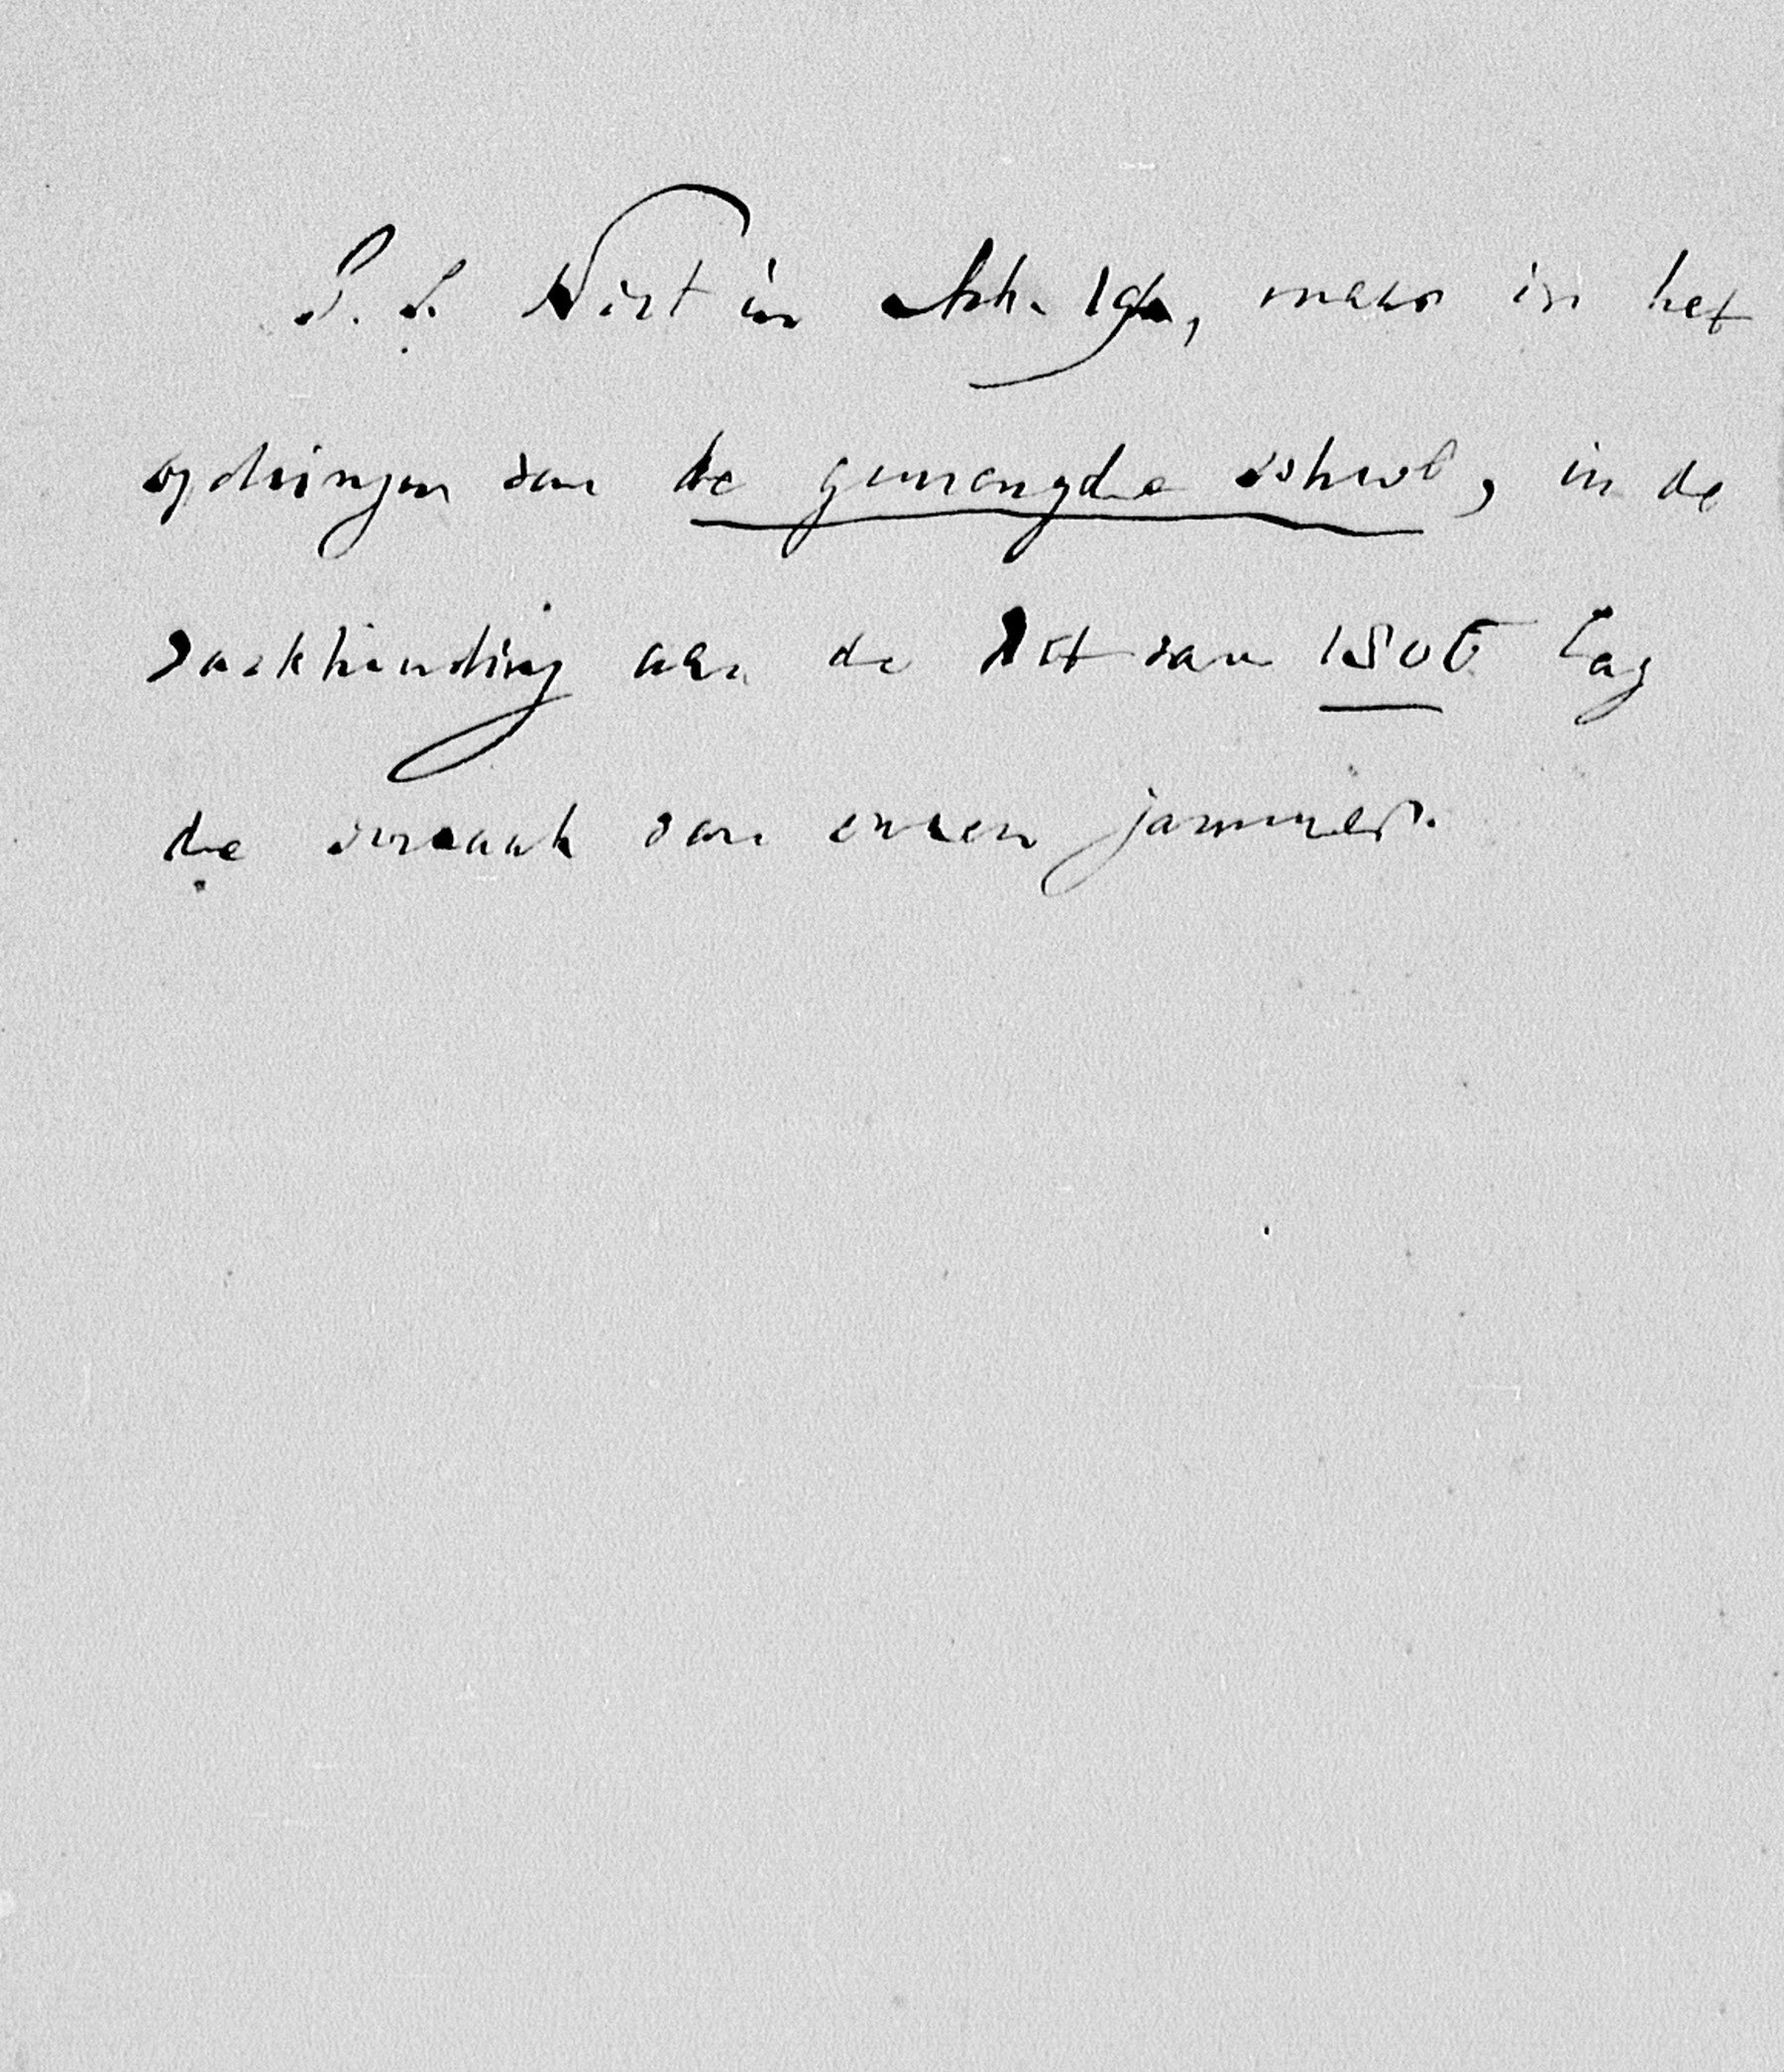 P. S. Niet in Art. 194, maar in het
opdringen van de gemengde school, in de
vasthouding aan de Wet van 1806 lag
de oorzaak van onzen jammer.